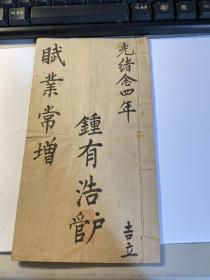 光绪念四年
鍾有浩户管
賦業常增
吉立